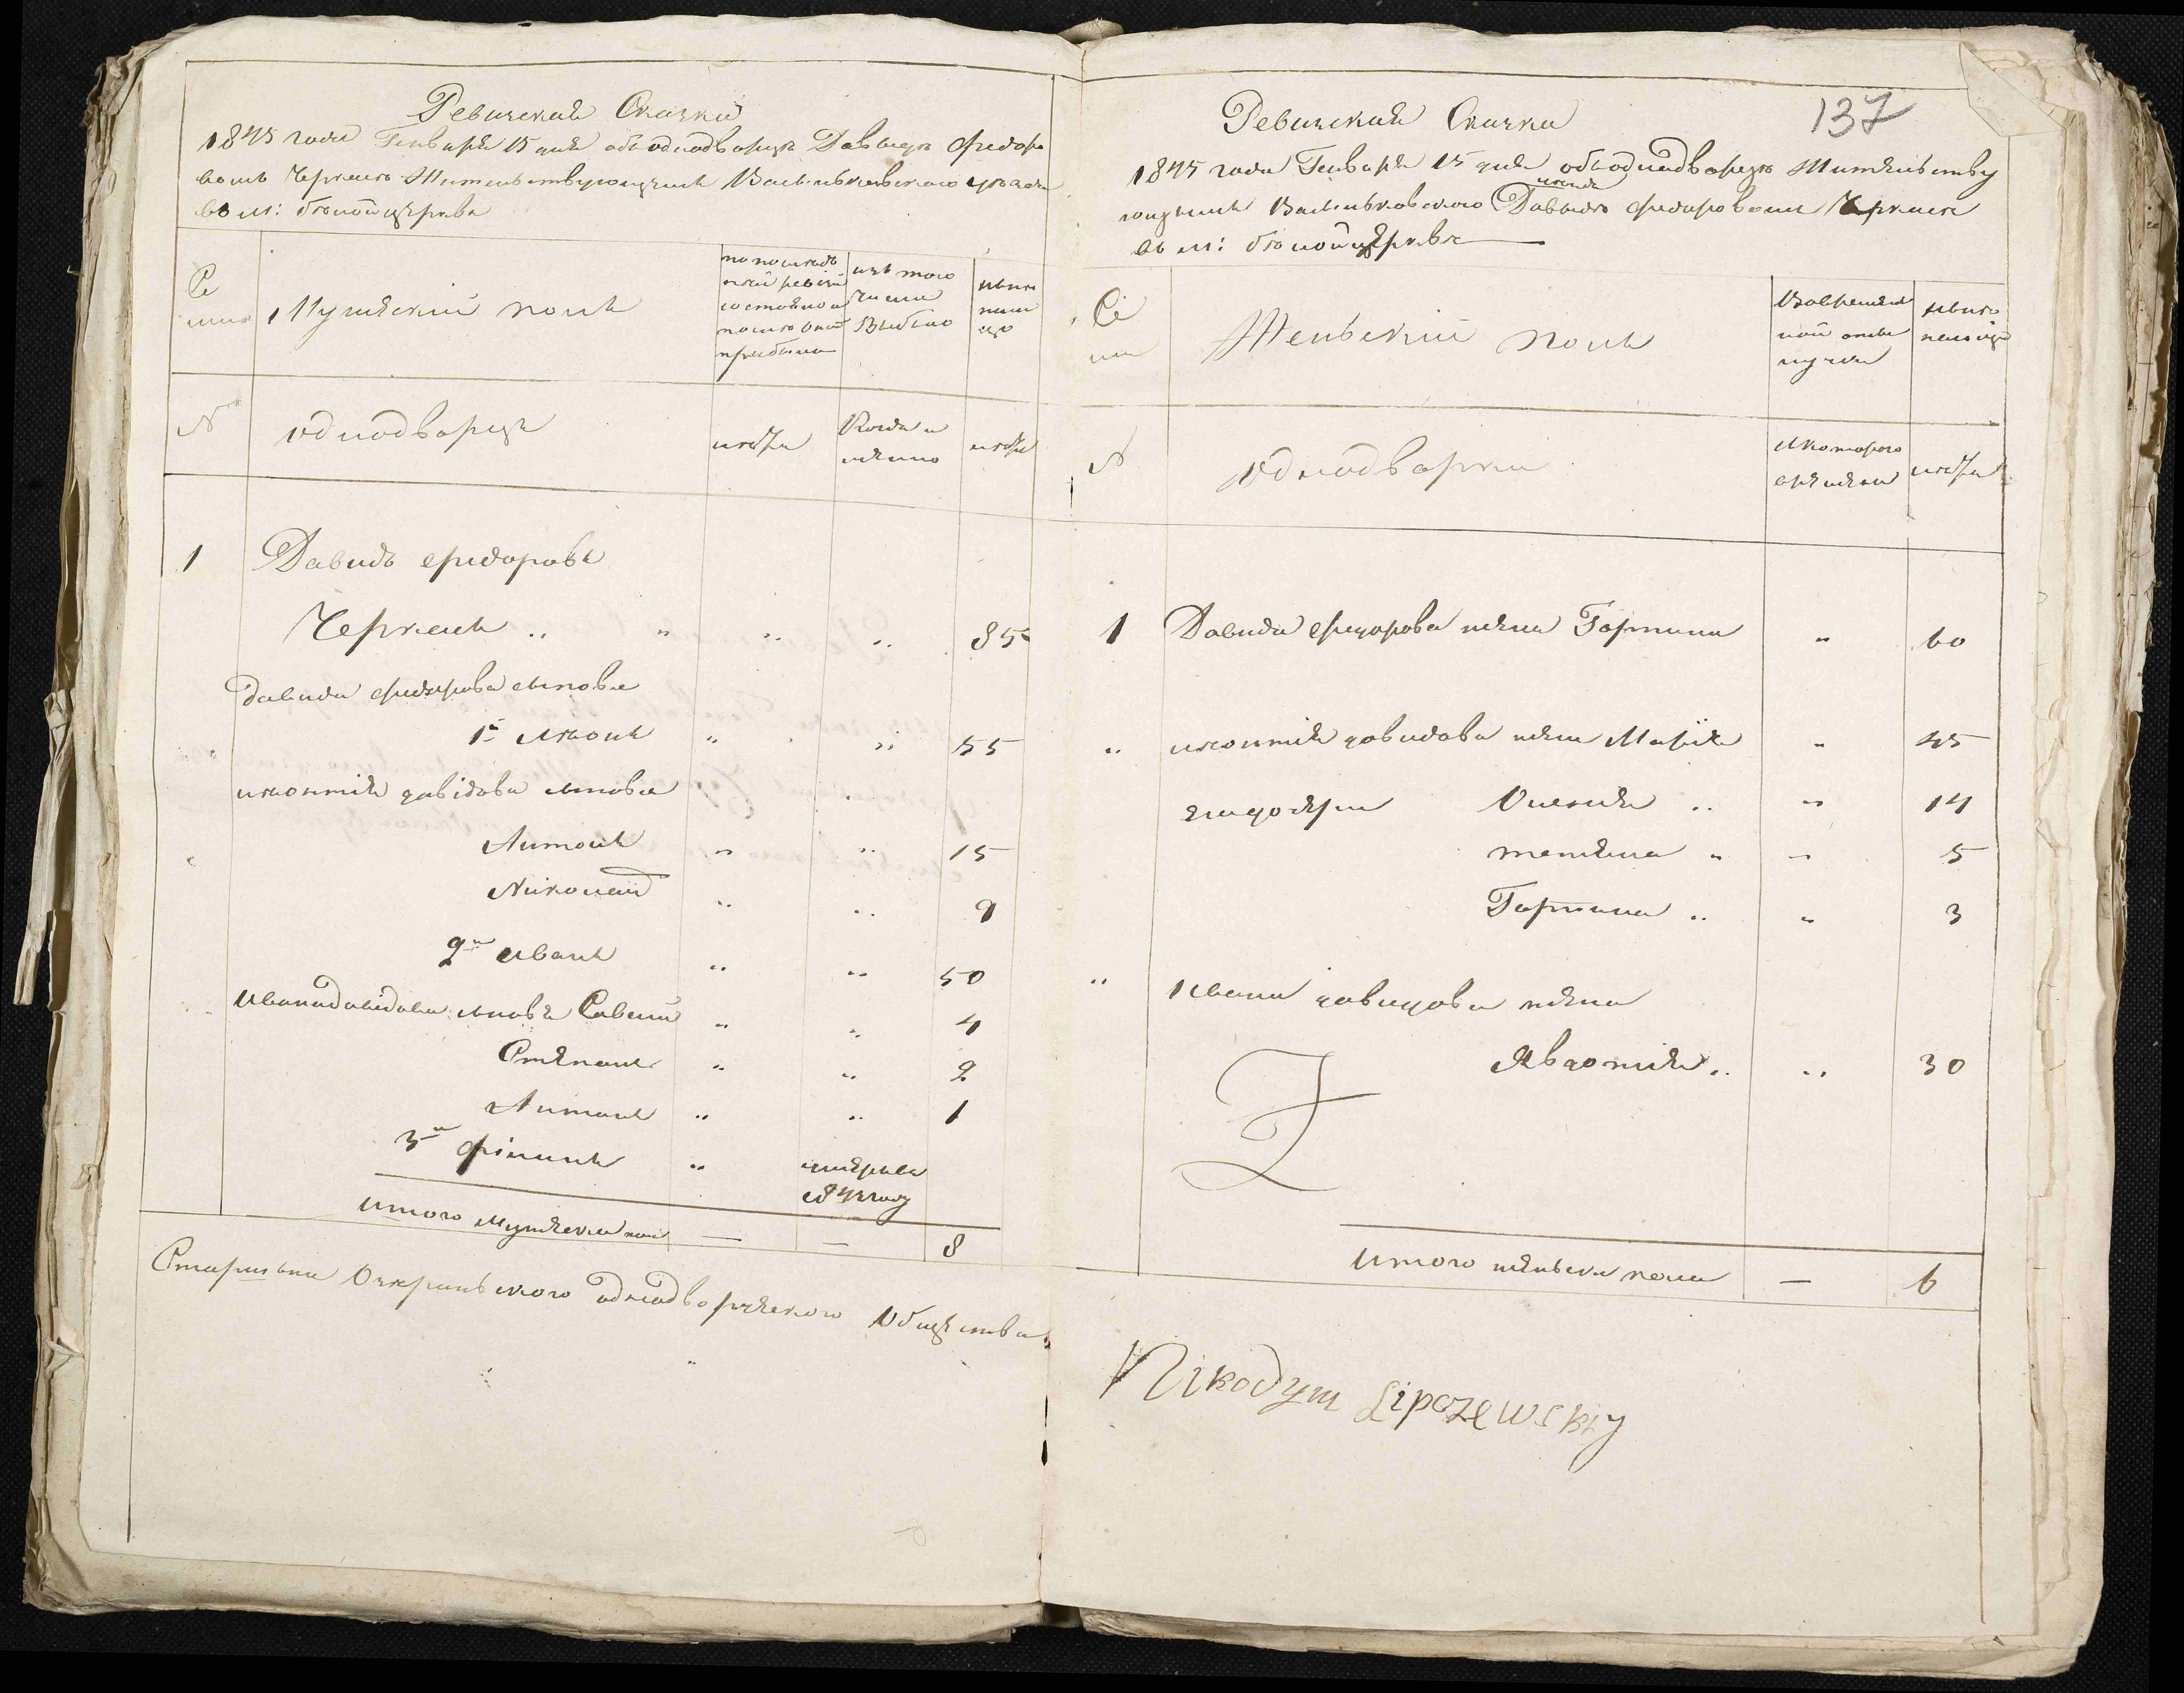 Ревизская Сказка
1845 года Генваря 15 дня объ однодворце Давиде Федоро
вомъ Черкасе Жительствующемъ Васильковского уезда
въ м: белой церкве
Се
мии
Мужеский полъ
по послед
ней ревизии
состояло и
после оной
прибыло
изъ того
числа
Выбыло
ныне
на ли
цо
№
однодворце
лета
Когда и
лета
1
Давидъ Федоровъ
Черкасъ „ „ „ „ 85
Давида Федорова сыновье
1й Леонъ „ „ 55
леонтия давідова сыновье
Антонъ „ „ 15
Николай „ „ 9
2й Иванъ „ „ 50
Ивана Давідова сыновья Савелий „ „ 4
Степанъ „ „ 2
Антонъ „ „ 1
3й Филипъ „ умерыв
1842 году
Итого мужеска пол — — 8
Старшына однодворческого Общества
137
Ревизская Сказка
1845 года Генваря 15 дня объ однодворце Жительству
ющымъ Васильковского Давыде Федоровомъ Черкасе
въ м: белой церкве
Се
мии
Женьский полъ
Вовремен
ной отлу
чки
ныне
на лице
№
однодворки
лета
1 Давида Федорова жена Гарпина „ 60
„ леонтия давидова жена Марія „ 45
его дочери
Олена „ „ 14
тетяна „ — 5
Гарпина „ „ 3
„ Ивана давидова жена
Явдотия „ „ 30
Итого женьска пола — 6
Nikodym Lipozewsky